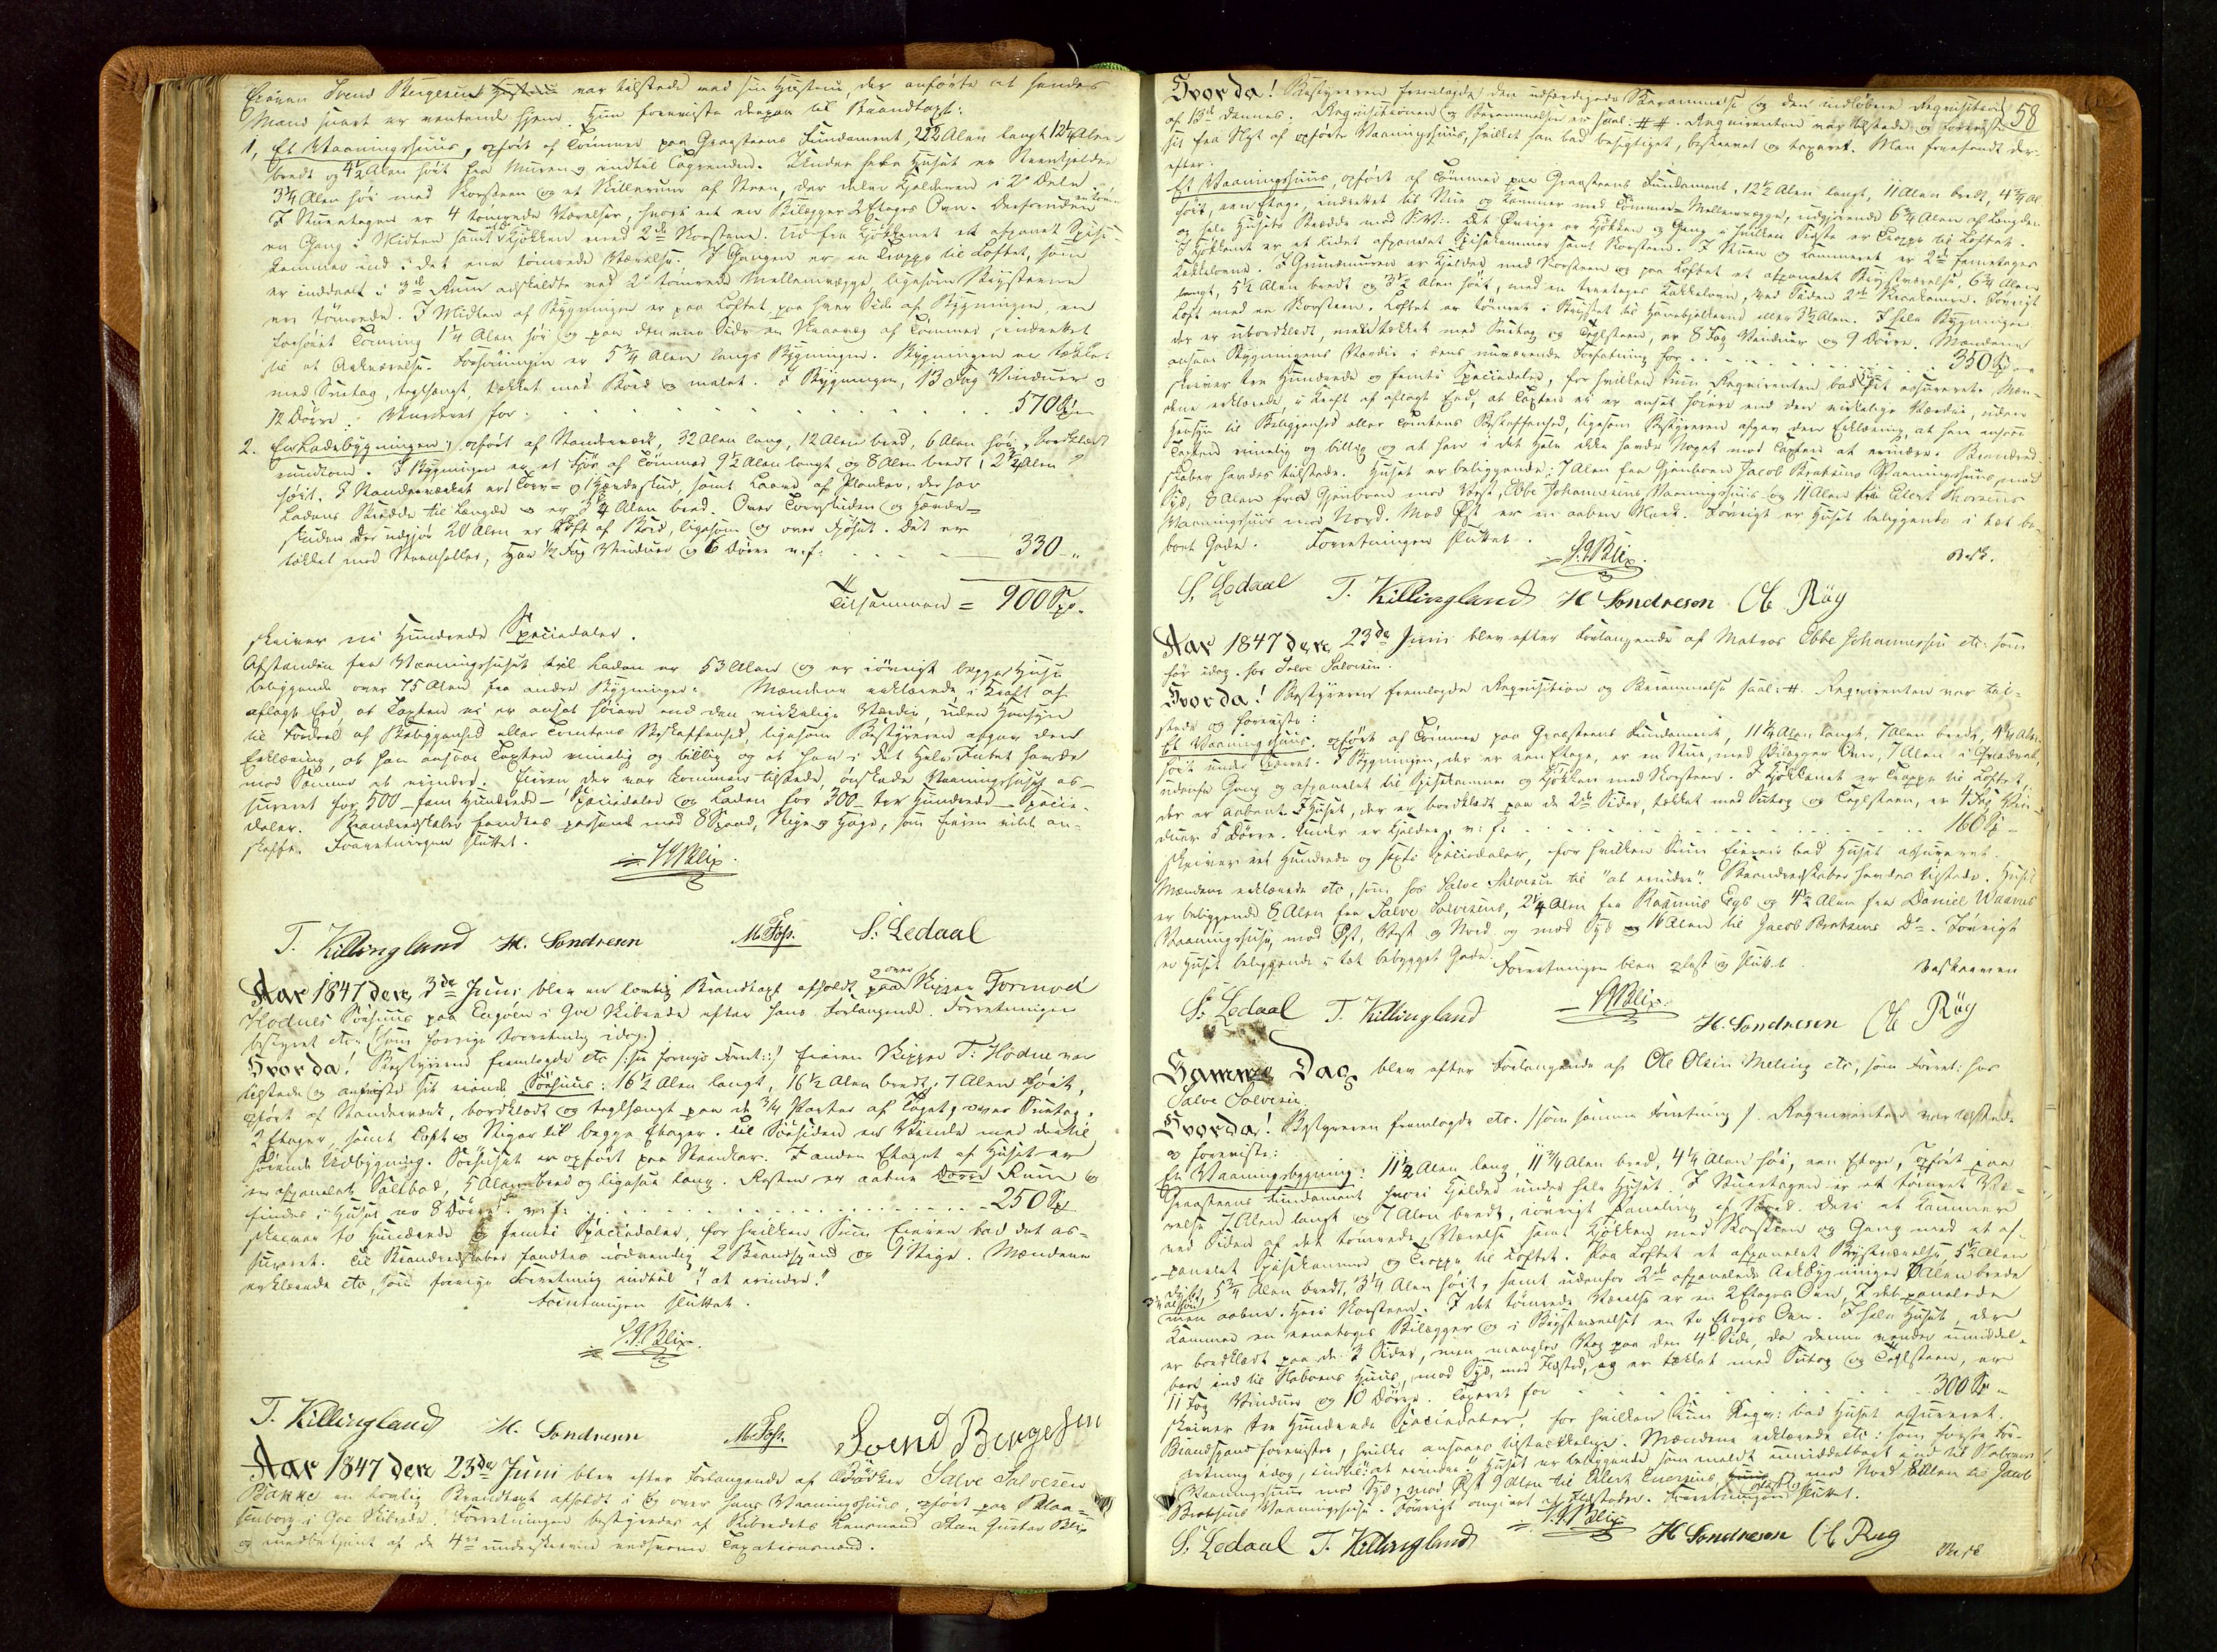 Eieren Svend Bergesens Hustru var tilstede med sin Hustru, der anførte at hendes
Mand snart er ventende hjem. Hun foreviste derpaa til Brandtaxt:
1, Et Vaaningshuus, opført af Tømmer paa Graasteens Fundament, 23½ Alen langt 12¼ Alen
bredt og 4½ Alen høit fra Muren og indtil Tagrenden. Under hele Huset er Steenkjelder
3¼ Alen høi med Skorsteen og et Skillerum af Steen, der deler Kjelderen i 2de Dele.
I Stueetagen er 4 tømrede Værelser, hvori eet en Bilægger 2 Etages Ovn. Desforuden
en Gang i Midten samt Kjøkken med 2de Skorstene. Ud fra Kjøkkenet et afpanet Spise-
kammer ind i det ene tømrede Værelse. I Gangen er en Trappe til Loftet, som
er inddeelt i 3de Rum adskildte ved 2de tømrede Mellemvægge, ligesom Brystene
ere tømrede. I Midten af Bygningen er paa Loftet, paa hver Side af Bygningen, en
forhøiet Tømring 1¼ Alen høi og paa den ene Side en af Tømmer, indrettet
til et Arkværelse. Forhøiningen er 5¾ Alen langs Bygningen. Bygningen er tækket
med Sutag, teglhængt, klædt med Bord og malet. I Bygningen, 13 Fag Vinduer og
12 Dørre. Vurderet for . . . . . . 570 Spd
2. En Ladebygning, opført af Standerværk, 32 Alen lang, 12 Alen bred, 6 Alen høi, bordklædt
rundtom. I Bygningen er et Fjøs af Tømmer 9½ Alen langt og 8 Alen bredt, 2¾ Alen
høit. I Standerværket er Torv- og Hændeskud, samt Laave af Planker, der har
Ladens Bredde til Længde og er 3¼ Alen bred. Over Torvskuden og Hænde-
skuden der udgjør 20 Alen er Loft af Bord, ligesom og over Fjøset. Det er
tækket med Steenheller, har ½ Fag Vinduer og 6 Døre v. f: . . . 330 "
Tilsammen = 900 Spd.
skriver ni Hundrede Speciedaler.
Afstanden fra Vaaningshuset til Laden er 53 Alen og er iøvrigt begge Huse
beliggende over 75 Alen fra andre Bygninger. Mændene erklærede i Kraft af
aflagt Eed, at Taxten ei er ansat høiere end den virkelige Værdie, uden Hensyn
til Fordeel af Beliggenhed eller Tomtens Beskaffenhed, ligesom Bestyreren afgav den
Erklæring, at han ansaae Taxten rimelig og billig og at han i det Hele Intet havde
mod Samme at erindre. Eieren, der var kommen tilstede, ønskede Vaaningshuset as-
sureret for 500 - fem Hundrede - Speciedaler og Laden for 300 - tre Hundrede - Specie-
daler. Brandredskaber fandtes passende med 8 Spand, Stige og Hage, som Eieren vilde an-
skaffe. Forretningen sluttet.
SGBlix.
T. Killingland H. Sondresen M. Fos. S: Ledaal
Aar 1847 den 3de Juni blev en lovlig Brandtaxt afholdt paa og over Skipper Tormod
Hodnes Søehuus paa i Goe Skibrede efter hans Forlangende. Forretningen
bestyret etc (som forrige Forretning idag.)
Hvorda! Bestyreren fremlagde etc /: see forrige Forret: :/ Eieren Skipper T: Hodne var
tilstede og anviste sit eiende Søehuus: 16½ Alen langt, 16½ Alen bredt, 7 Alen høit,
opført af Standerværk, bordklædt og teglhængt paa de ¾ Parter af Taget, over Sutag.
2 Etager, samt Loft og Stiger til begge Etager. Til Søesiden er Vinde med dertil
hørende Udbygning. Søehuset er opført paa Steenkar. I anden Etage af Huset er
en afpanelet Saltbod, 5 Alen bred og ligesaa lang. Resten er aabne Rum og
findes i Huset er 8 Dørre. v: f: . . . . . . 250 Spd
skriver to Hundrede og femti Speciedaler, for hvilken Sum Eieren bad det as-
sureret. Til Brandredskaber fandtes nødvendig 2 Brandspand og 1 Stige. Mændene
erklærede etc, som forrige Forretning indtil "at erindre."
Forretningen sluttet.
SGBlix.
T. Killingland H. Sondresen M. Fos. Svend Bergesen
Aar 1847 den 23de Juni blev efter Forlangende af Bødker Salve Salvesen
Bakke en lovlig Brandtaxt afholdt i og over hans Vaaningshuus, opført paa
i Goe Skibrede. Forretningen bestyredes af Skibredets Lensmand Sten Gustav Blix
og medbetjent af de 4re underskrevne eedsvorne Taxationsmænd.
58
Hvorda! Bestyreren fremlagde den udfærdigede Berammelse og den indløbne Requisition
af 13de dennes. Requisitionen og Berammelsen er saal: ##. Requirenten var tilstede og foreviste
sit fra Nyt af opførte Vaaningshuus, hvilket han bad besigtiget, beskrevet og taxeret. Man fremfandt der-
efter:
Et Vaaningshuus, opført af Tømmer paa Graasteens Fundament, 12½ Alen langt, 11 Alen bredt, 4¾ Al
høit, een Etage, indrettet til Stue og Kammer med Tømmer-Mellemvægge, udgjørende 6¾ Alen af Længden
og hele Husets Bredde mod S.V. Det Øvrige er Kjøkken og Gang i hvilken Sidste er Trappe til Loftet.
I Kjøkkenet er et lidet afpanelet Spisekammer samt Skorsteen. I Stuen og Kammeret er 2de femetages
Kakkelovne. I Grundmuren er Kjelder med Skorsteen og paa Loftet et afpanelet Brystværelse, 6¾ Alen
langt, 5½ Alen bredt og 3½ Alen høit, med en treetages Kakkelovn, ved Siden 2de . Iøvrigt
Loft med en Skorsteen. Loftet er tømret i Brystet til Hanebjelkerne eller 3½ Alen. I hele Bygningen
der er ubordklædt, men tækket med Sutag og Taglsteen, er 8 Fag Vinduer og 9 Dørre. Mændene
ansaae Bygningens Værdie i dens nuværende Forfatning for . . . . 350 Spd
skriver tre Hundrede og femti Speciedaler, for hvilken Sum Requirenten bad sit assureret. Mæn-
dene erklærede, i Kraft af aflagt Eed, at Taxten ei er ansat høiere end den virkelige Værdie, uden
Hensyn til Beliggenhed eller Tomtens Beskaffenhed, ligesom Bestyreren afgav den Erklæring, at han ansaae
Taxten rimelig og billig og at han i det Hele ikke havde Noget mod Taxten at erindre. Brandred-
skaber havdes tilstede. Huset er beliggende: 7 Alen fra Gjenboen Jacob Bertsens Vaaningshuus mod
Syd, 8 Alen fra Gjenboen mod Vest, Ebbe Johannesens Vaaningshuus og 11 Alen fra Eilert
Vaaningshuus mod Nord. Mod Øst er en aaben Mark. Iøvrigt er Huset beliggende i tæt be-
boet Gade. Forretningen sluttet.
SGBlix.
S. Ledaal T. Killingland H Sondresen Ob Røy
Aar 1847 den 23de Juni blev efter Forlangende af Matros Ebbe Johannesen etc: som
før idag hos Salve Salvesen.
Hvorda! Bestyreren fremlagde Requisition og Berammelse saal: #. Requirenten var til-
stede og foreviste:
Et Vaaningshuus, opført af Tømmer paa Graasteens Fundament, 11¼ Alen langt, 7 Alen bredt, 4¼ Alen
høit under Taget. I Bygningen, der er een Etage, er en Stue, med Bilægger Ovn, 7 Alen i Qvadrat,
udenfor Gang og afpanelet til Spisekammer og Kjøkken med Skorsteen. I Kjøkkenet er Trappe til Loftet,
der er aabent. I Huset, der er bordklædt paa de 2de Sider, tækket med Sutag og Taglsteen, er 4 Fag Vin-
duer 5 Dørre. Under er Kjelder. v: f: . . . . . . 160 Sp
skriver eet Hundrede og sexti Speciedaler, for hvilken Sum Eieren bad Huset assureret.
Mændene erklærede etc, som hos Salve Salvesen til "at erindre". Brandredskaber havdes tilstede. Huset
er beliggende 8 Alen fra Salve Salvesens, 2¼ Alen fra Rasmus Egs og 4½ Alen fra Daniel Waavus
Vaaningshuse, mod Øst, Vest og Nord og mod Syd 16 Alen til Jacob Bertsens Do. Iøvrigt
er Huset beliggende i tæt bebygget Gade. Forretningen blev oplæst og sluttet.
SGBlix.
S: Ledaal T. Killingland H. Sondresen Ob Røy
Samme Dag blev efter Forlangende af Ole Olsen Meling etc, som Forret: hos
Salve Salvesen.
Hvorda! Bestyreren fremlagde etc. /: som samme Forretning :/. Requirenten var tilstede
og foreviste:
En Vaaningsbygning: 11½ Alen lang, 11¾ Alen bred, 4¼ Alen høi, een Etage, opført paa
Graasteens Fundament hvori Kjelder under hele Huset. I Stueetagen er et tømret Væ-
relse 7 Alen langt og 7 Alen bredt, iøvrigt Paneling af Bord. Deri et Kammer
ved Siden af det tømrede Værelse samt Kjøkken med Skorsteen og Gang med et af-
panelet Spisekammer og Trappe til Loftet. Paa Loftet et afpanelet Brystværelse, 5½ Alen
dybt, 5¾ Alen bredt, 3¼ Alen høit, samt udenfor 2de afpanelede Arkbygninger 6 Alen brede
3¼ Al høie
men aabne. Heri Skorsteen. I det tømrede Værelse er en 2 Etages Ovn, I det panelede
Kammer en eenetages Bilægger og i Brystværelset en to Etages Ovn. I hele Huset, der
er bordklædt paa de 3 Sider, men mangler Væg paa den 4de Side, da denne vender umiddel-
bart ind til Naboens Huus, mod Syd, med Ildsted, og er tækket med Sutag og Taglsteen, er
11 Fag Vinduer og 10 Dørre. Taxeret for . . . . . 300 Sp
skriver tre Hundrede Speciedaler, for hvilken Sum Reqv: bad Huset assureret.
Brandspand forevistes, hvilke ansaaes tilstrækkelige. Mændene erklærede etc: som første For-
retning idag, indtil "at erindre." Huset er beliggende som meldt umiddelbart ind til Naboens
Vaaningshuus mod Syd, mod Øst 9 Alen til Eilert Enersens mod Nord 8 Alen til Jacob
Bertsens Vaaningshuse. Iøvrigt omgivet af Ildsteder. Forretningen oplæst og sluttet.
SGBlix
S. Ledaal T. Killingland H Sondresen Ob Røg